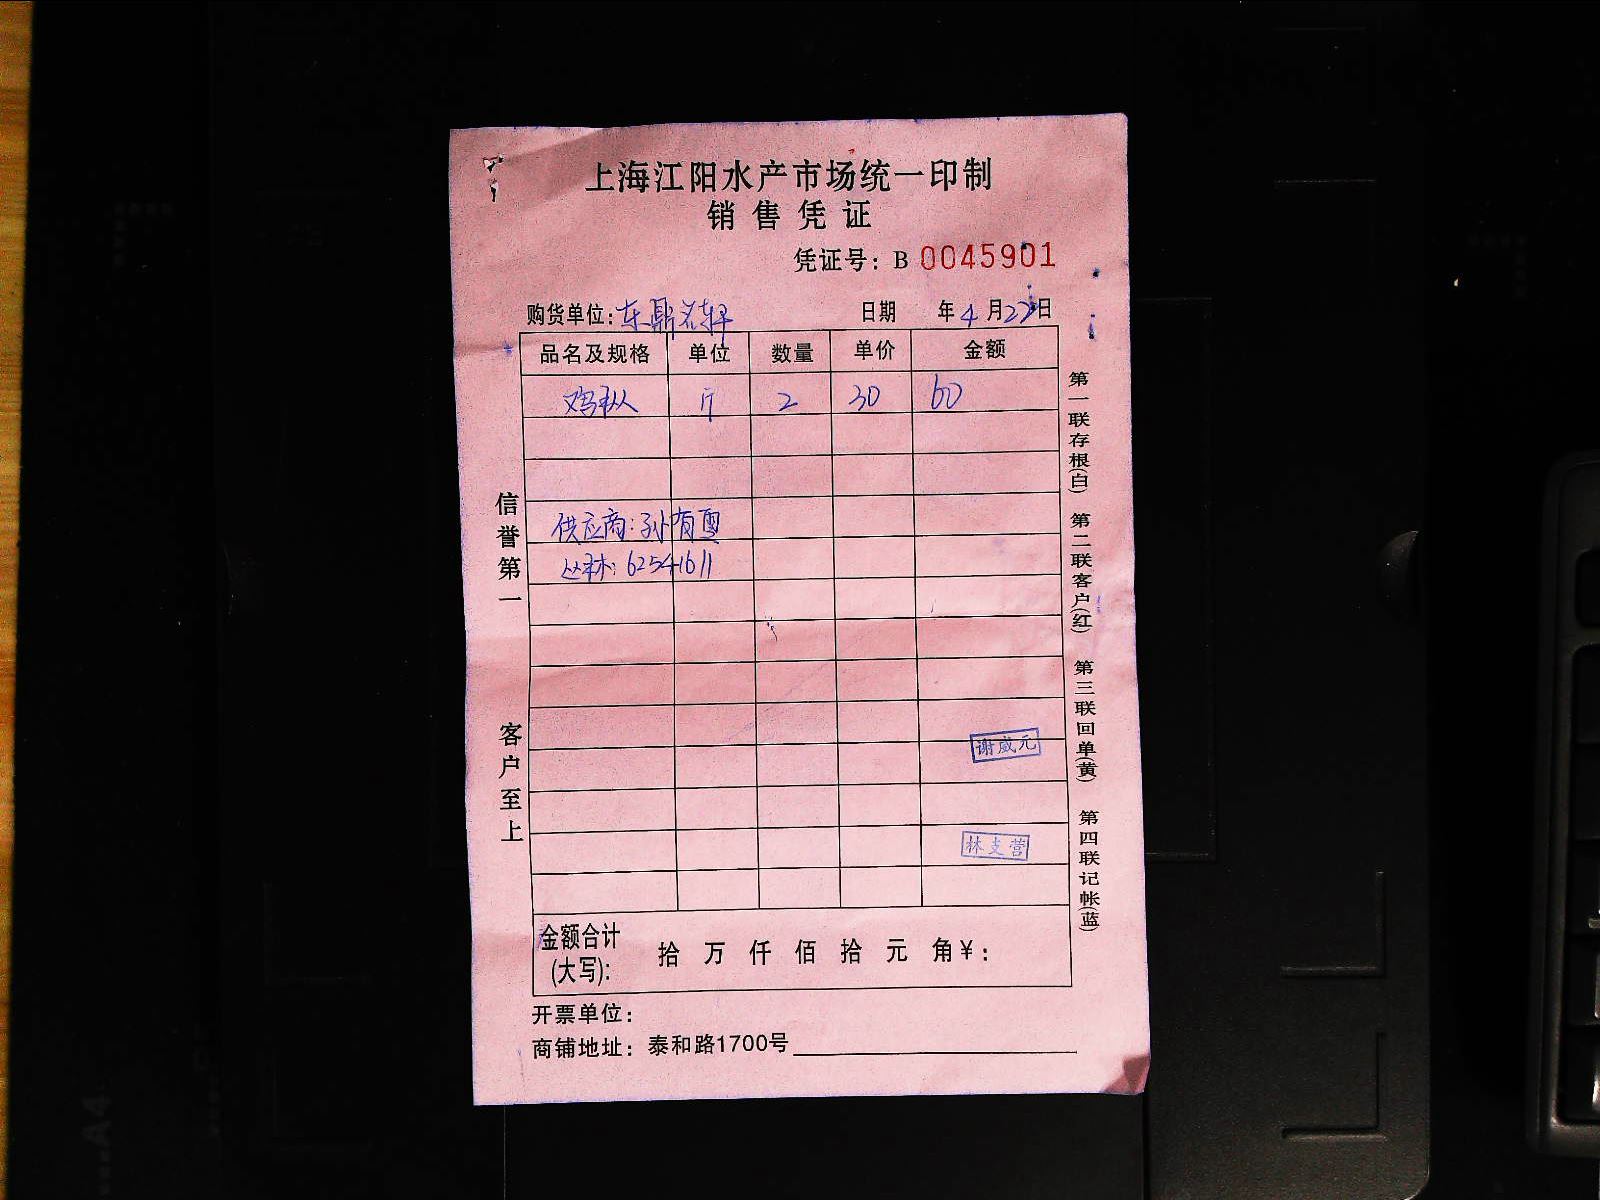 上海江阳水产市场统一印制
销售凭证
凭证号：B 0045901
购货单位：东鼎名轩 日期 年4月22日
品名及规格 单位 数量 单价 金额
斤 2 30 60
供应商：孙有
丛林：62541611
谢咸元
林支营
金额合计(大写)： 拾 万 仟 佰 拾 元 角¥：
开票单位：
商铺地址：泰和路1700号
信誉第一 客户至上
第一联存根(白) 第二联客户(红) 第三联回单(黄) 第四联记帐(蓝)